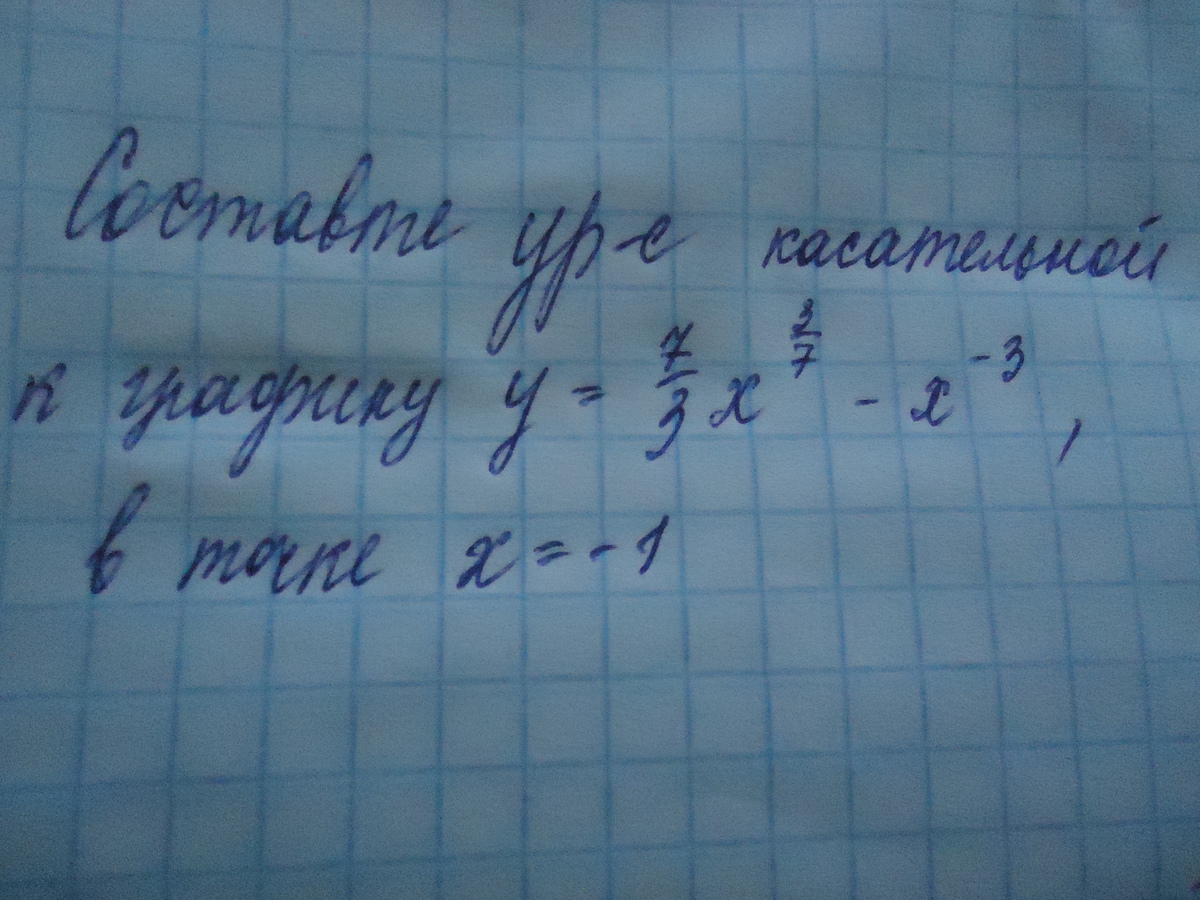 Составте ур-е касательной
к графику y = 7/3 x^(3/7) - x^(-3) ,
в точке x = -1